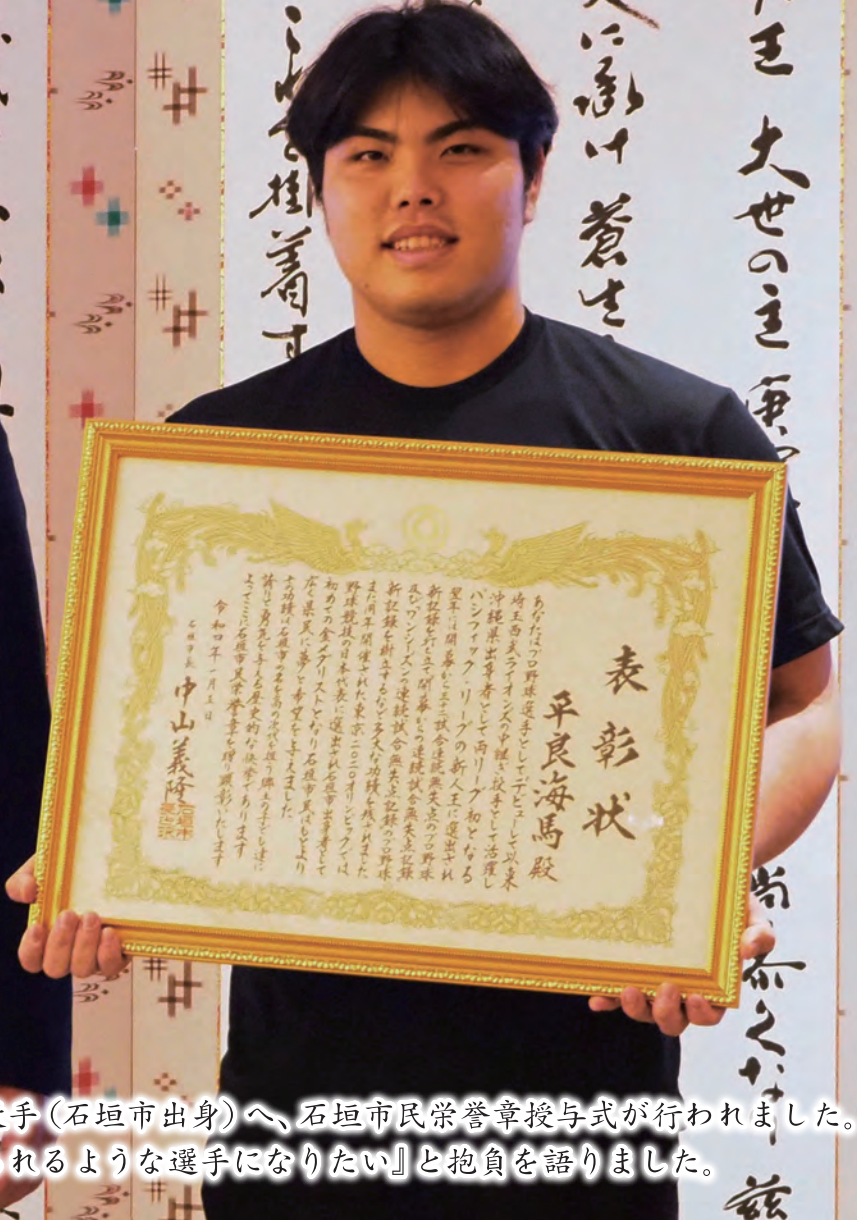 王 大世の主
に承け 蒼生
掛着す
尚泰久
表彰状
平良海馬 殿
あなたはプロ野球選手としてデビューして以来
埼玉西武ライオンズの中継ぎ投手として活躍し
沖縄県出身者として両リーグ初となる
パシフィック・リーグの新人王に選出され
翌年には開幕から 試合連続無失点のプロ野球
新記録を打ち立て開幕からの連続試合無失点記録
及びワンシーズンの連続試合無失点記録のプロ野球
新記録を樹立するなど多大な功績を残されました
また同年開催された東京二〇二〇オリンピックでは
野球競技の日本代表に選出され石垣市出身者として
初めての金メダリストとなり石垣市民はもとより
広く県民に夢と希望を与えました
その功績は石垣市の名を高め次代を担う郷土の子ども達に
誇りと勇気を与える歴史的な快挙であります
よってここに石垣市民栄誉章を贈り顕彰いたします
令和四年一月五日
石垣市長 中山義隆
手（石垣市出身）へ、石垣市民栄誉章授与式が行われました。
れるような選手になりたい』と抱負を語りました。